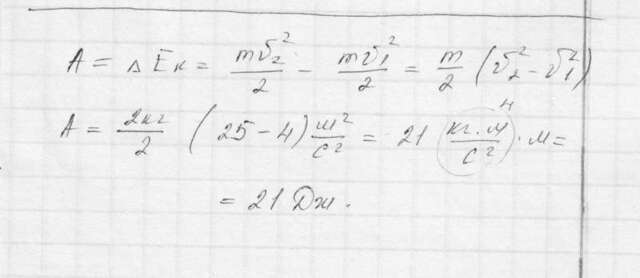 A = ΔEк = mv₂²/2 − mv₁²/2 = m/2 (v₂² − v₁²)
A = 2кг/2 (25 − 4) м²/с² = 21 (кг·м/с²)ᴴ · м =
= 21 Дж.